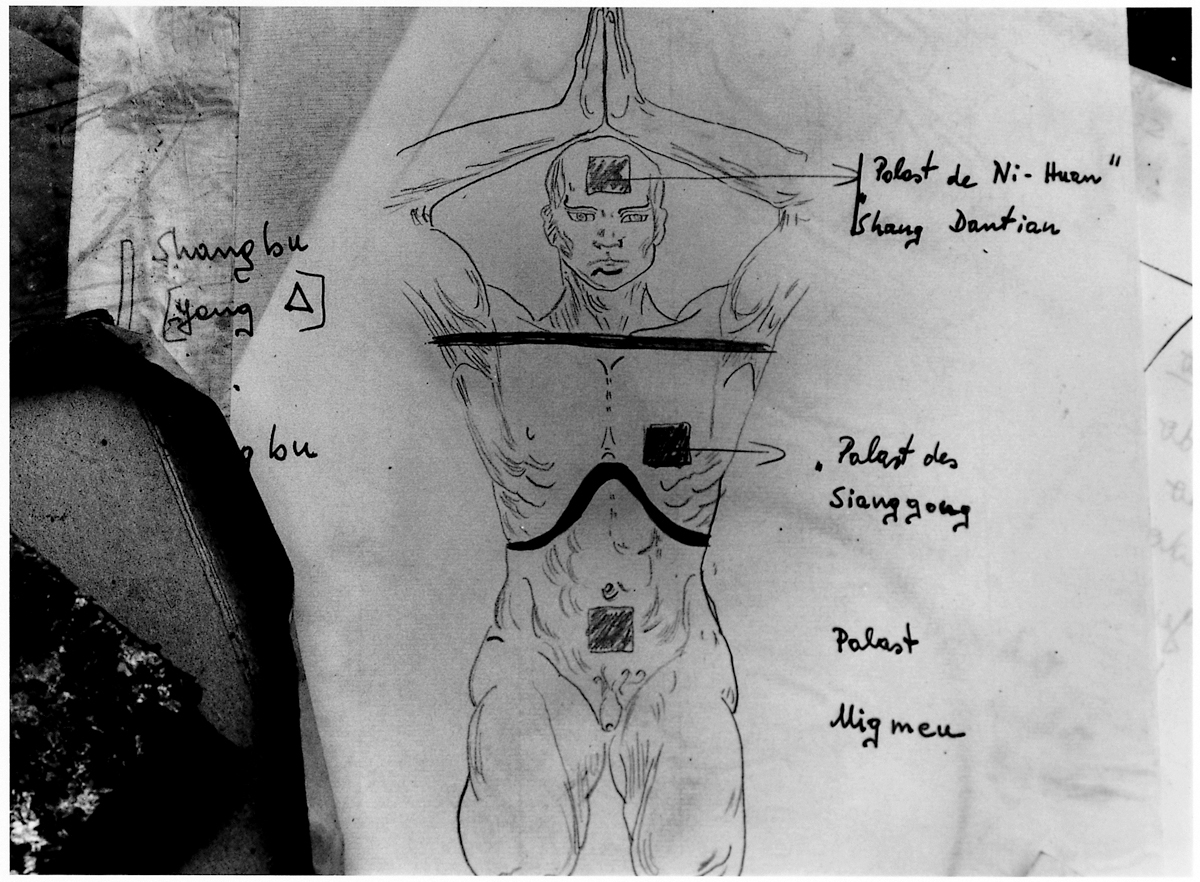 Shangbu
[Yang Δ]
bu
Palast de Ni-Huan"
"Shang Dantian
„Palast des
Sianggong
Palast
Migmen